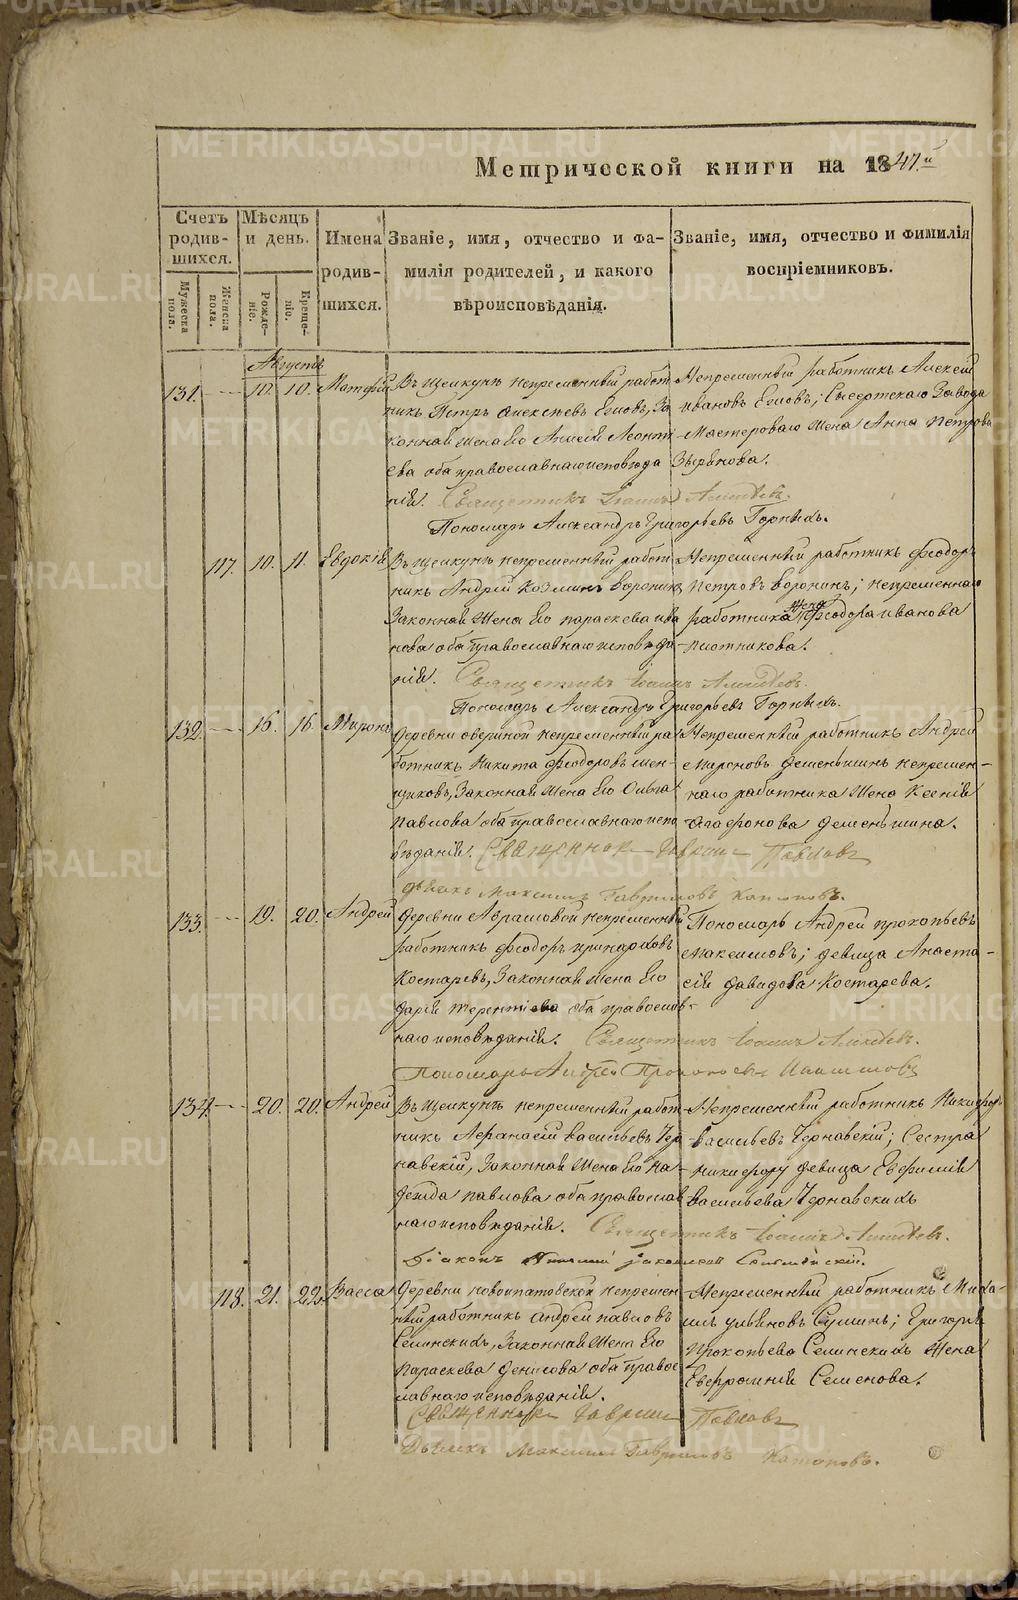 Метрической книги на 1847й
Счетъ родившихся.
Мужеска пола.
Женска пола.
Мѣсяцъ и день.
Рождение.
Крещение.
Имена родившихся.
Званіе, имя, отчество и фамилія родителей, и какого вѣроисповѣданія.
Званіе, имя, отчество и фимилія воспріемниковъ.
Августъ
131. 10. 10. Матѳей
Въ Щелкунѣ непременный работ
никъ Петръ Алексѣевъ Еловъ, За
конная жена его Анисія Леонти
ева оба православнаго исповѣда
нія. Священникъ Іоаннъ
Пономарь Александръ Григорьевъ Горныхъ.
Непременный работникъ Алексѣй
Ивановъ Еловъ; Сысертскаго Завода
Мастероваго жена Анна Петрова
Зырянова.
117. 10. 11. Евдокія
Въ Щелкунѣ непременный работ
никъ Андрей Козминъ Воронинъ
Законная жена его Параскева Ива
нова оба православнаго исповѣда
нія. Священникъ Іоаннъ
Пономарь Александръ Григорьевъ Горныхъ.
Непременный работникъ Феодоръ
Петровъ Воронинъ; непременнаго
работника жена Феодора Иванова
Плотникова.
132. 16. 16. Миронъ
Деревни Авериной непременный ра
ботникъ Никита Феодоровъ
Законная жена его Ольга
Павлова оба православнаго испо
вѣданія. Священникъ Гавриилъ Павловъ
Дьячекъ Максимъ Гавриловъ
Непременный работникъ Андрей
Мироновъ Деменьшинъ непремен-
наго работника жена Ксенія
Агафонова Деменьшина.
133. 19. 20. Андрей
Деревни Абрамовой непременный
работникъ Феодоръ Иринарховъ
Костаревъ, Законная жена его
Дарія Терентіева оба православ-
наго исповѣданія. Священникъ Іоаннъ
Пономарь Андрей Прокопьевъ
Пономарь Андрей Прокопьевъ
Максимовъ; девица Анаста-
сія Давидова Костарева.
134. 20. 20. Андрей
Въ Щелкунѣ непременный работ
никъ Афанасій Васильевъ Чер
навскій, Законная жена его На
дежда Павлова оба православ
наго исповѣданія. Священникъ Іоаннъ
Діаконъ
Непременный работникъ Никифоръ
Васильевъ Чернавскій; Сестра
Никифору девица Евфимія
Васильева Чернавскихъ
118. 21. 22. Васса
Деревни Новоипатовской непремен
ный работникъ Андрей Павловъ
Селинскихъ, Законная жена его
Параскева Денисова оба право
славнаго исповѣданія.
Священникъ Гавриилъ Павловъ
Дьячекъ Максимъ Гавриловъ
Непременный работникъ Миха-
илъ Ульяновъ Сушинъ; Григорія
Прокопьева Селинскихъ жена
Евфросинія Семенова.
METRIKI.GASO-URAL.RU